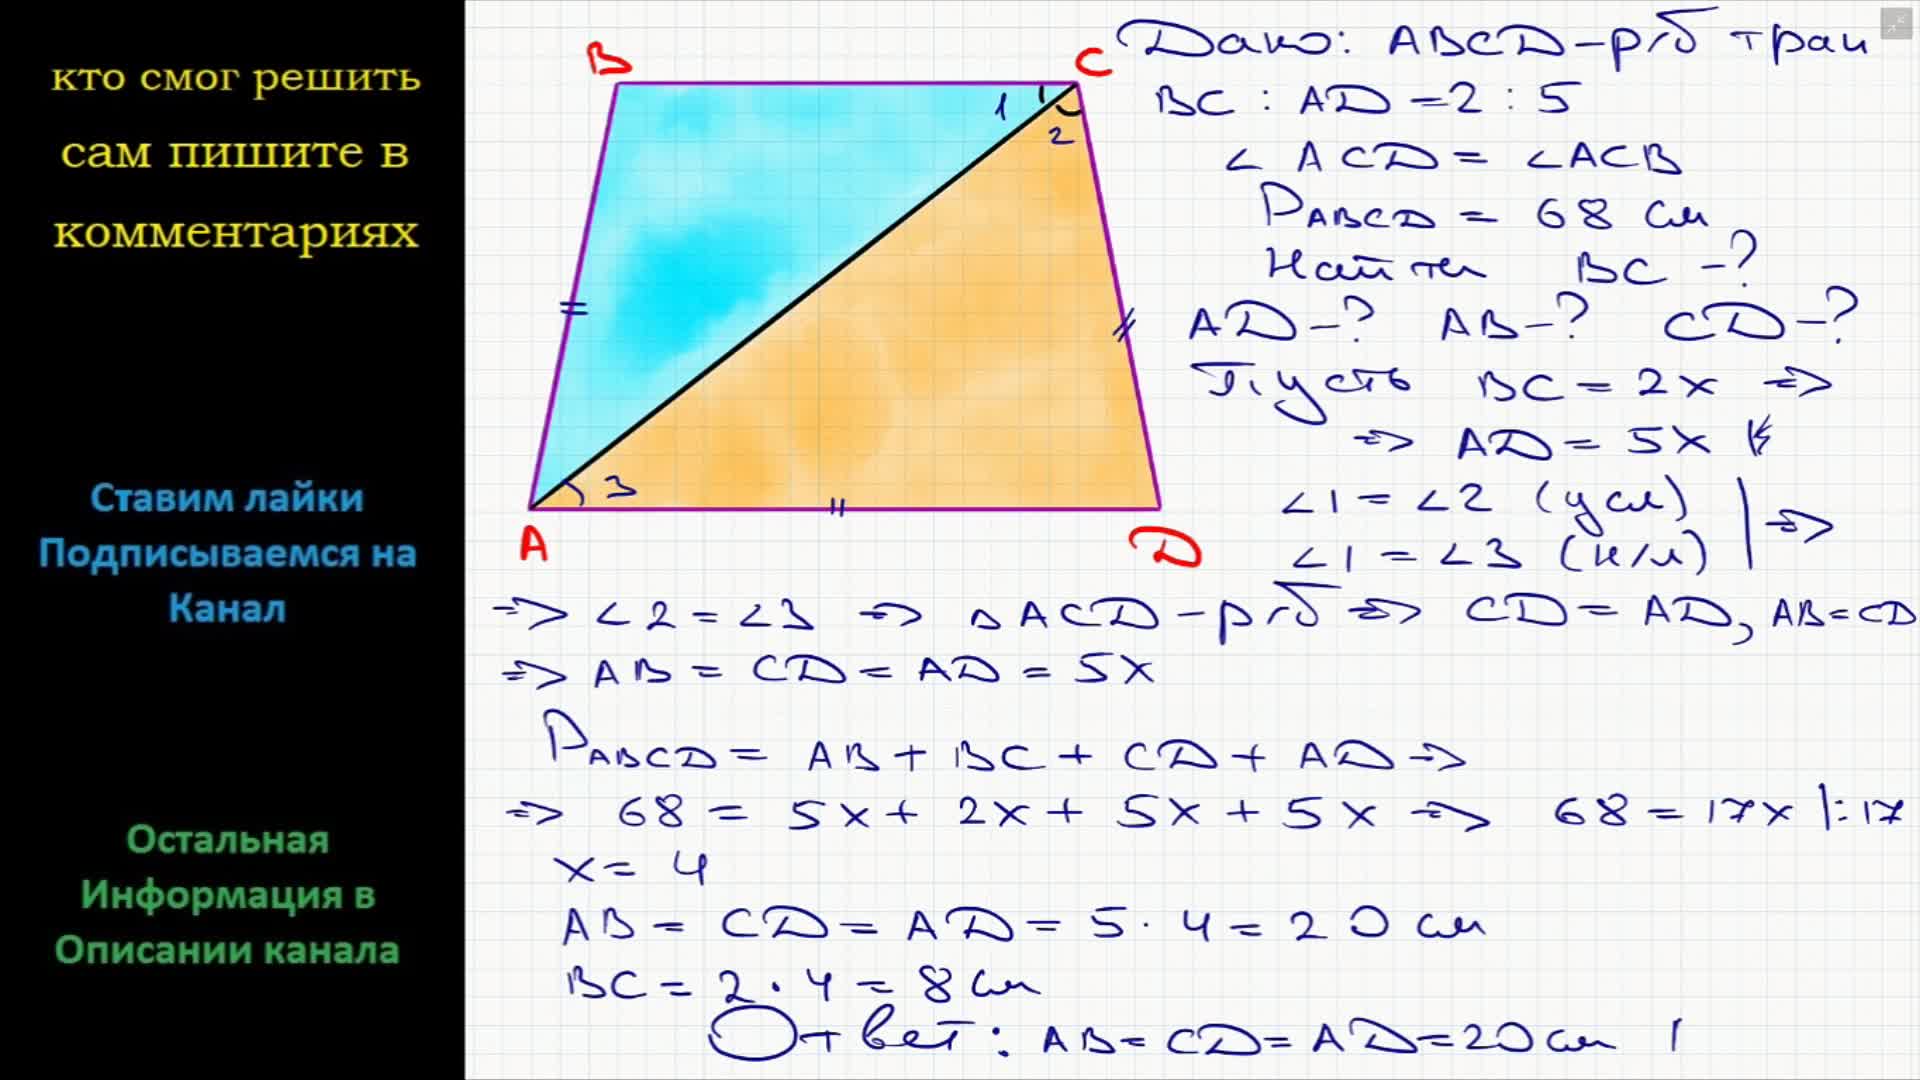 кто смог решить
сам пишите в
комментариях
Ставим лайки
Подписываемся на
Канал
Остальная
Информация в
Описании канала
B
C
1
2
3
A
D
Дано: ABCD – р/б трап
BC : AD = 2 : 5
∠ ACD = ∠ACB
PABCD = 68 см
Найти BC – ?
AD – ? AB – ? CD – ?
Пусть BC = 2x =>
=> AD = 5x
∠1 = ∠2 (усл)
∠1 = ∠3 (н/л) | =>
=> ∠2 = ∠3 => △ACD – р/б => CD = AD, AB = CD
=> AB = CD = AD = 5x
PABCD = AB + BC + CD + AD =>
=> 68 = 5x + 2x + 5x + 5x => 68 = 17x |:17
x = 4
AB = CD = AD = 5 · 4 = 20 см
BC = 2 · 4 = 8 см
Ответ: AB = CD = AD = 20 см